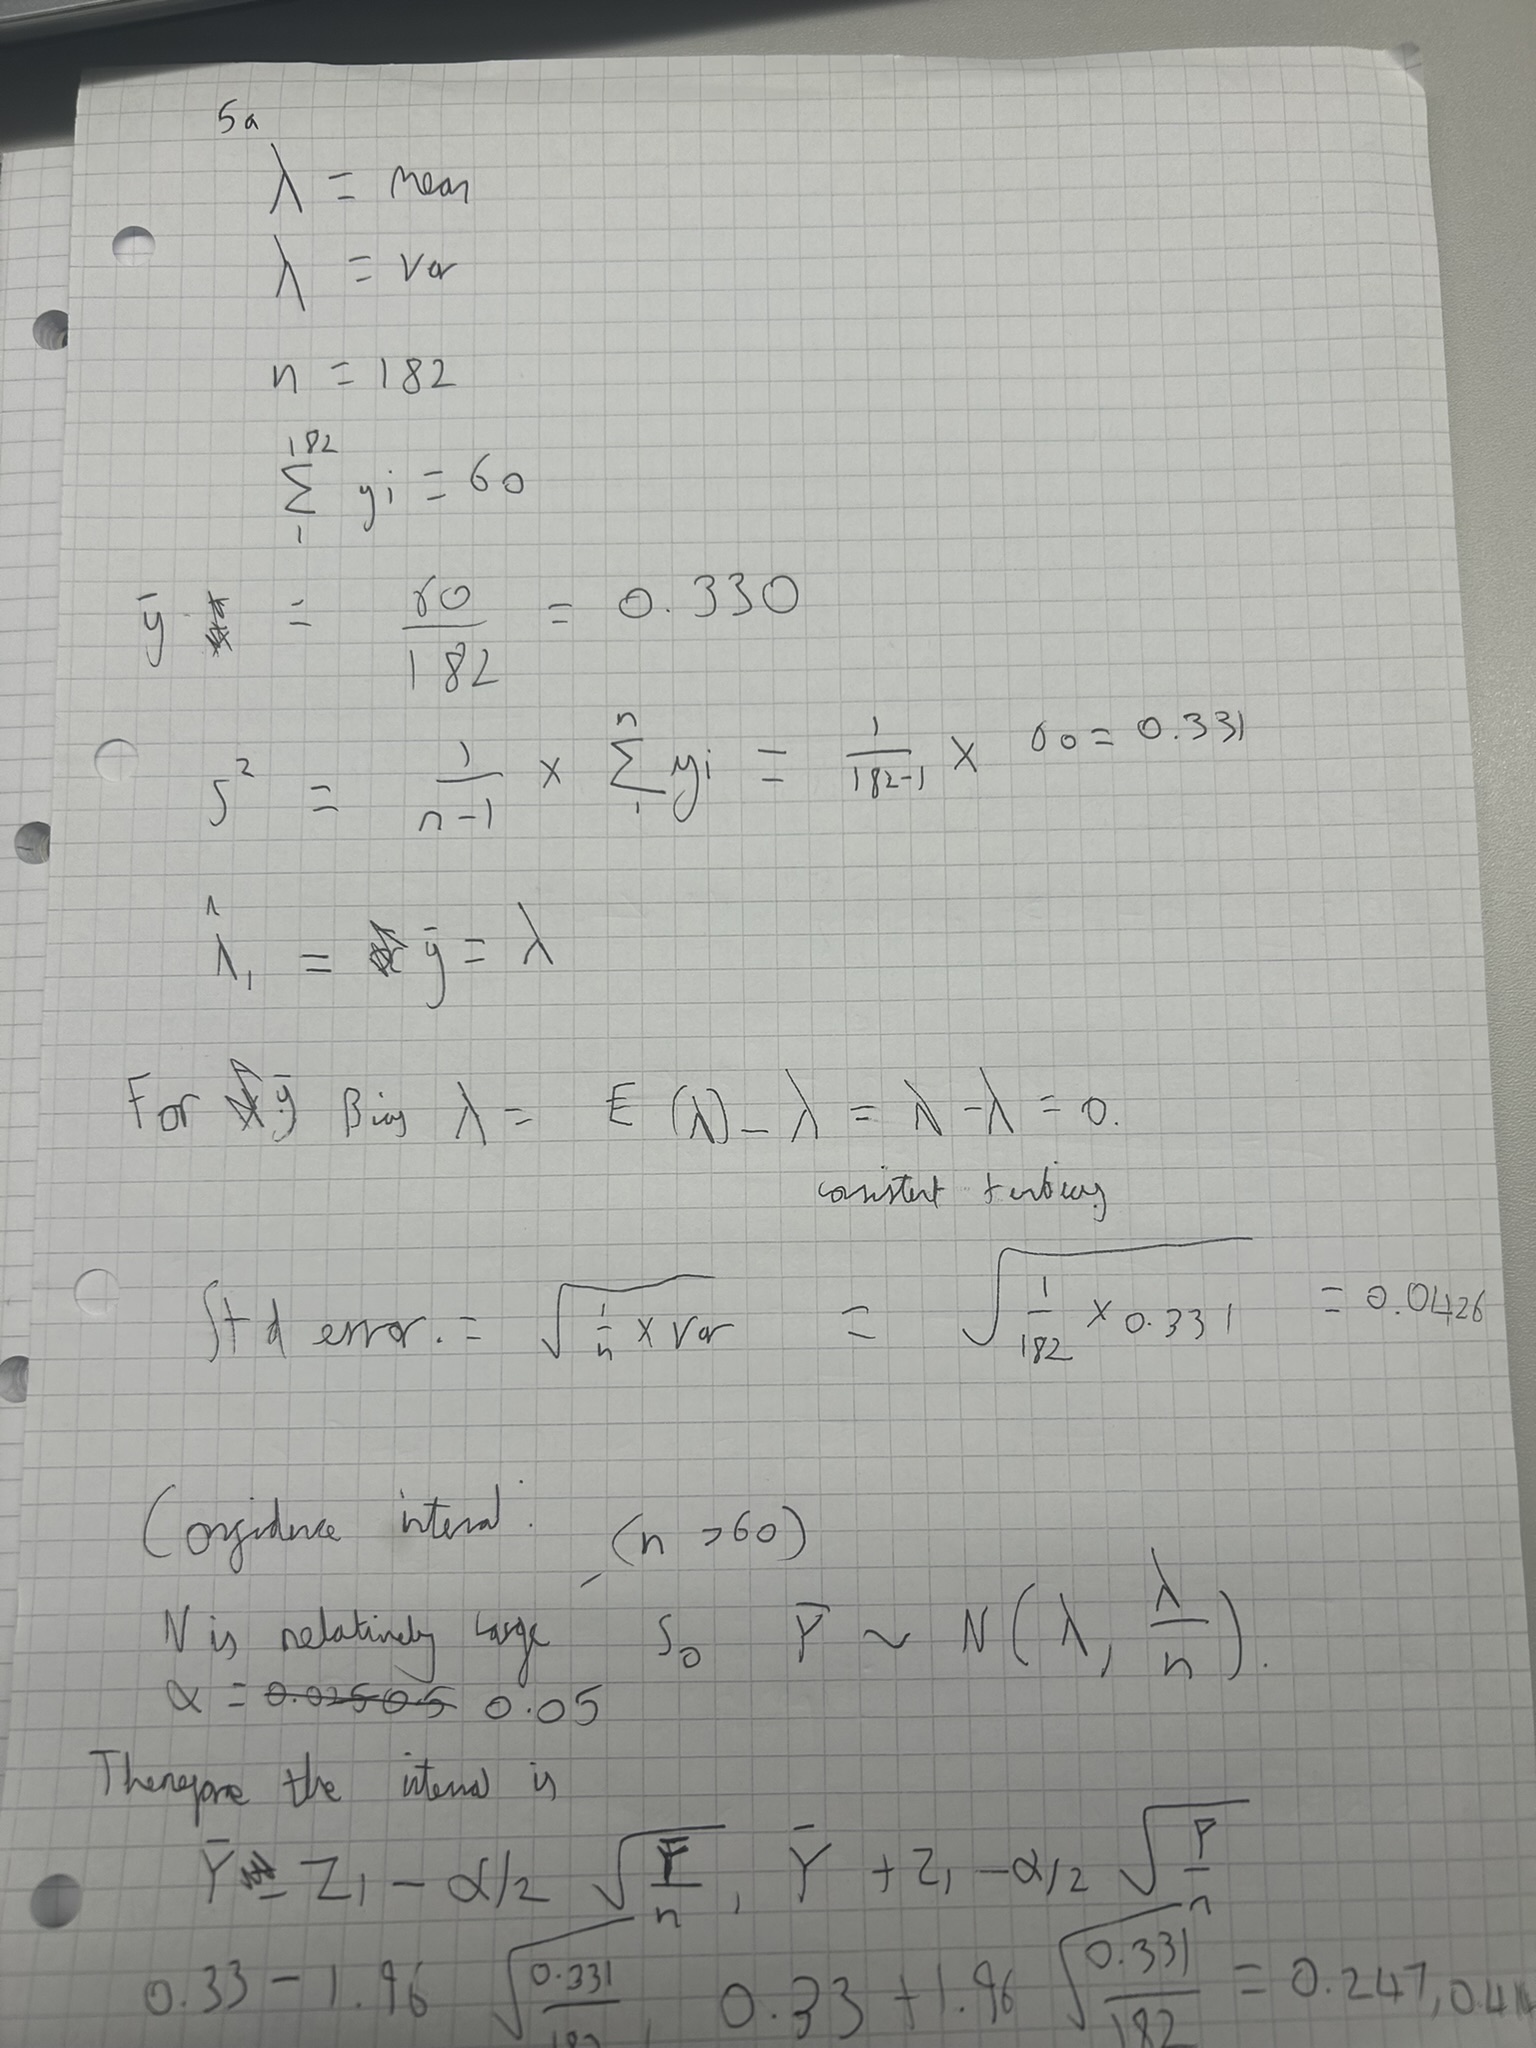 5a
λ = mean
λ = var
n = 182
∑₁¹⁸² yi = 60
ȳ = 60/182 = 0.330
s² = 1/(n-1) × ∑₁ⁿ yi = 1/(182-1) × 60 = 0.331
λ̂₁ = ȳ = λ
For ȳ Bias λ = E(λ) - λ = λ - λ = 0.
consistent + unbias
Std error. = √(1/n × var) = √(1/182 × 0.331) = 0.0426
Confidence interval: (n >60)
N is relatively large So Ȳ ~ N(λ, λ/n).
α = 0.05
Therefore the interval is
Ȳ - Z₁-α/2 √(Ȳ/n), Ȳ + Z₁-α/2 √(Ȳ/n)
0.33 - 1.96 √(0.331/182), 0.33 + 1.96 √(0.331/182) = 0.247,